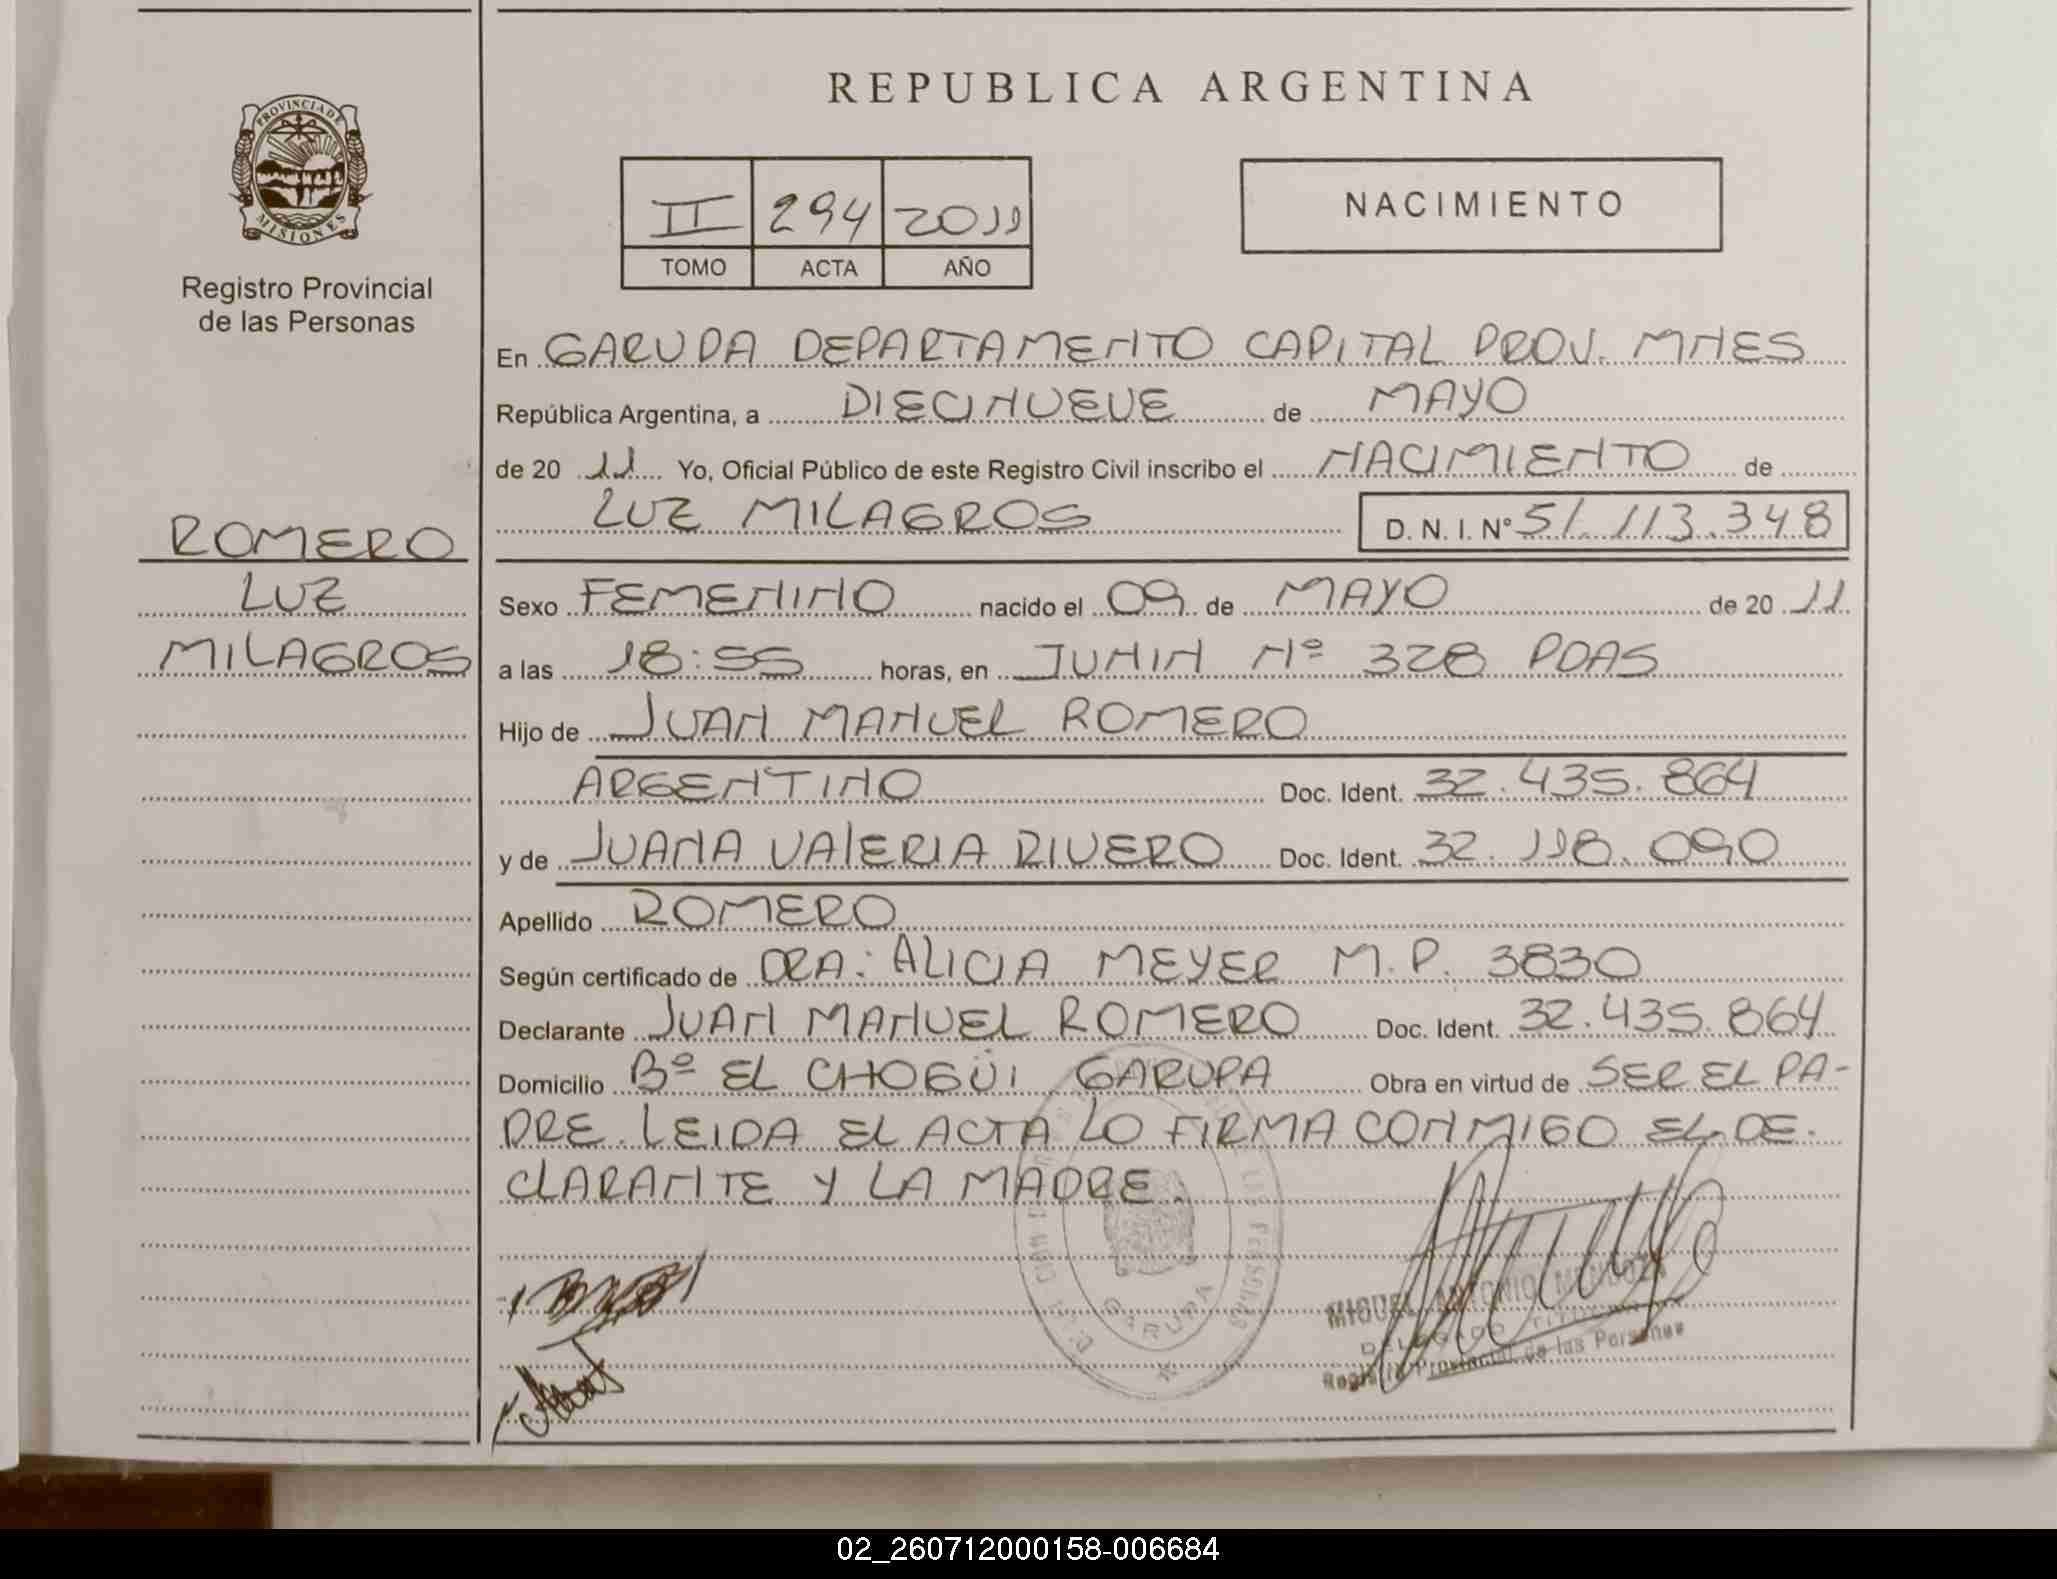 REPUBLICA ARGENTINA
PROVINCIA DE
MISIONES
Registro Provincial
de las Personas
II 294 2011
TOMO ACTA AÑO
NACIMIENTO
En GARUPA DEPARTAMENTO CAPITAL PROV. MNES
República Argentina, a DIECINUEVE de MAYO
de 20 11 Yo, Oficial Público de este Registro Civil inscribo el NACIMIENTO de
LUZ MILAGROS D. N. I. Nº 51.113.348
ROMERO
LUZ
MILAGROS
Sexo FEMENINO nacido el 09 de MAYO de 20 11
a las 18:55 horas, en JUNIN Nº 328 PDAS
Hijo de JUAN MANUEL ROMERO
ARGENTINO Doc. Ident. 32.435.864
y de JUANA VALERIA RIVERO Doc. Ident. 32.118.090
Apellido ROMERO
Según certificado de DRA: ALICIA MEYER M.P. 3830
Declarante JUAN MANUEL ROMERO Doc. Ident. 32.435.864
Domicilio Bº EL CHOGÜI GARUPA Obra en virtud de SER EL PA-
DRE. LEIDA EL ACTA LO FIRMA CONMIGO EL DE-
CLARANTE Y LA MADRE.
GARUPA
MIGUEL ANTONIO MENDOZA
DELEGADO TITULAR
Registro Provincial de las Personas
02_260712000158-006684